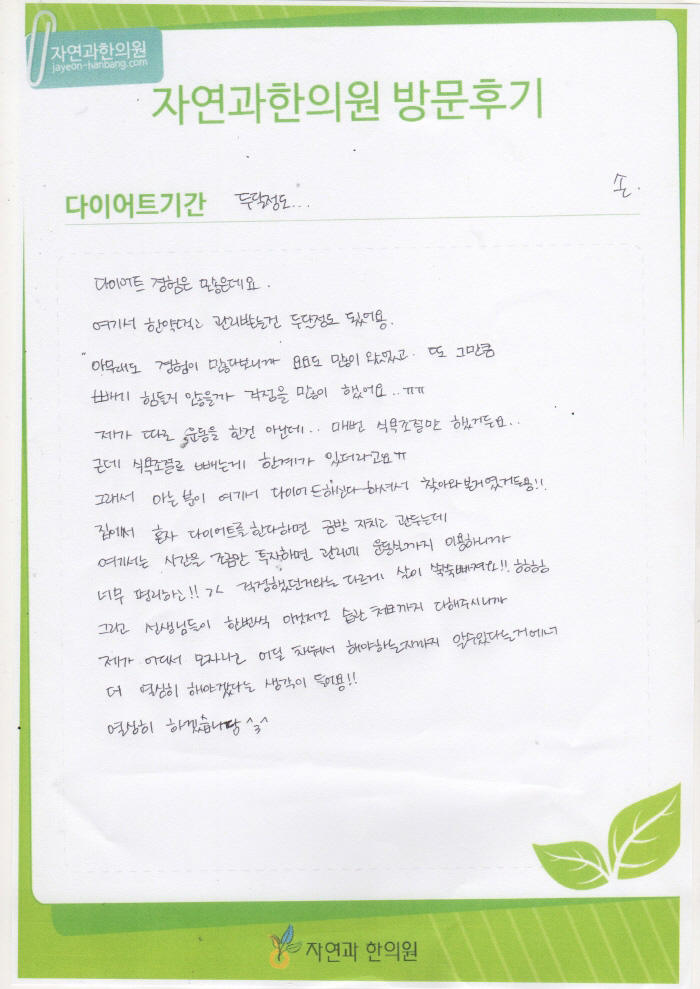 자연과한의원
jayeon-hanbang.com
자연과한의원 방문후기
다이어트기간 두달정도...
손.
다이어트 경험은 많은데요.
여기서 한약먹고 관리받는건 두달정도 됬어용.
아무래도 경험이 많다보니까 요요도 많이 왔었고. 또 그만큼
빼기 힘들지 않을까 걱정을 많이 했어요..ㅠㅠ
제가 따로 운동을 한건 아닌데.. 매번 식욕조절만 했거든요..
근데 식욕조절로 빼는게 한계가 있더라고요ㅠ
그래서 아는분이 여기서 다이어트하신다하셔서 찾아와본거였거든용!!
집에서 혼자 다이어트를한다하면 금방 지치고 관두는데
여기서는 시간을 조금만 투자하면 관리에 운동실까지 이용하니까
너무 편리하고!! ㅋㅋ 걱정했던거와는 다르게 살이 쑥쑥빠져요!! 헝헝
그리고 선생님들이 한번씩 이것저것 습관 체크까지 다해주시니까
제가 어디서 모자라고 어딜 채워서 해야하는지까지 알수있다는거에
더 열심히 해야겠다는 생각이 들어용!!
열심히 하겠습니당 ^3^
자연과 한의원